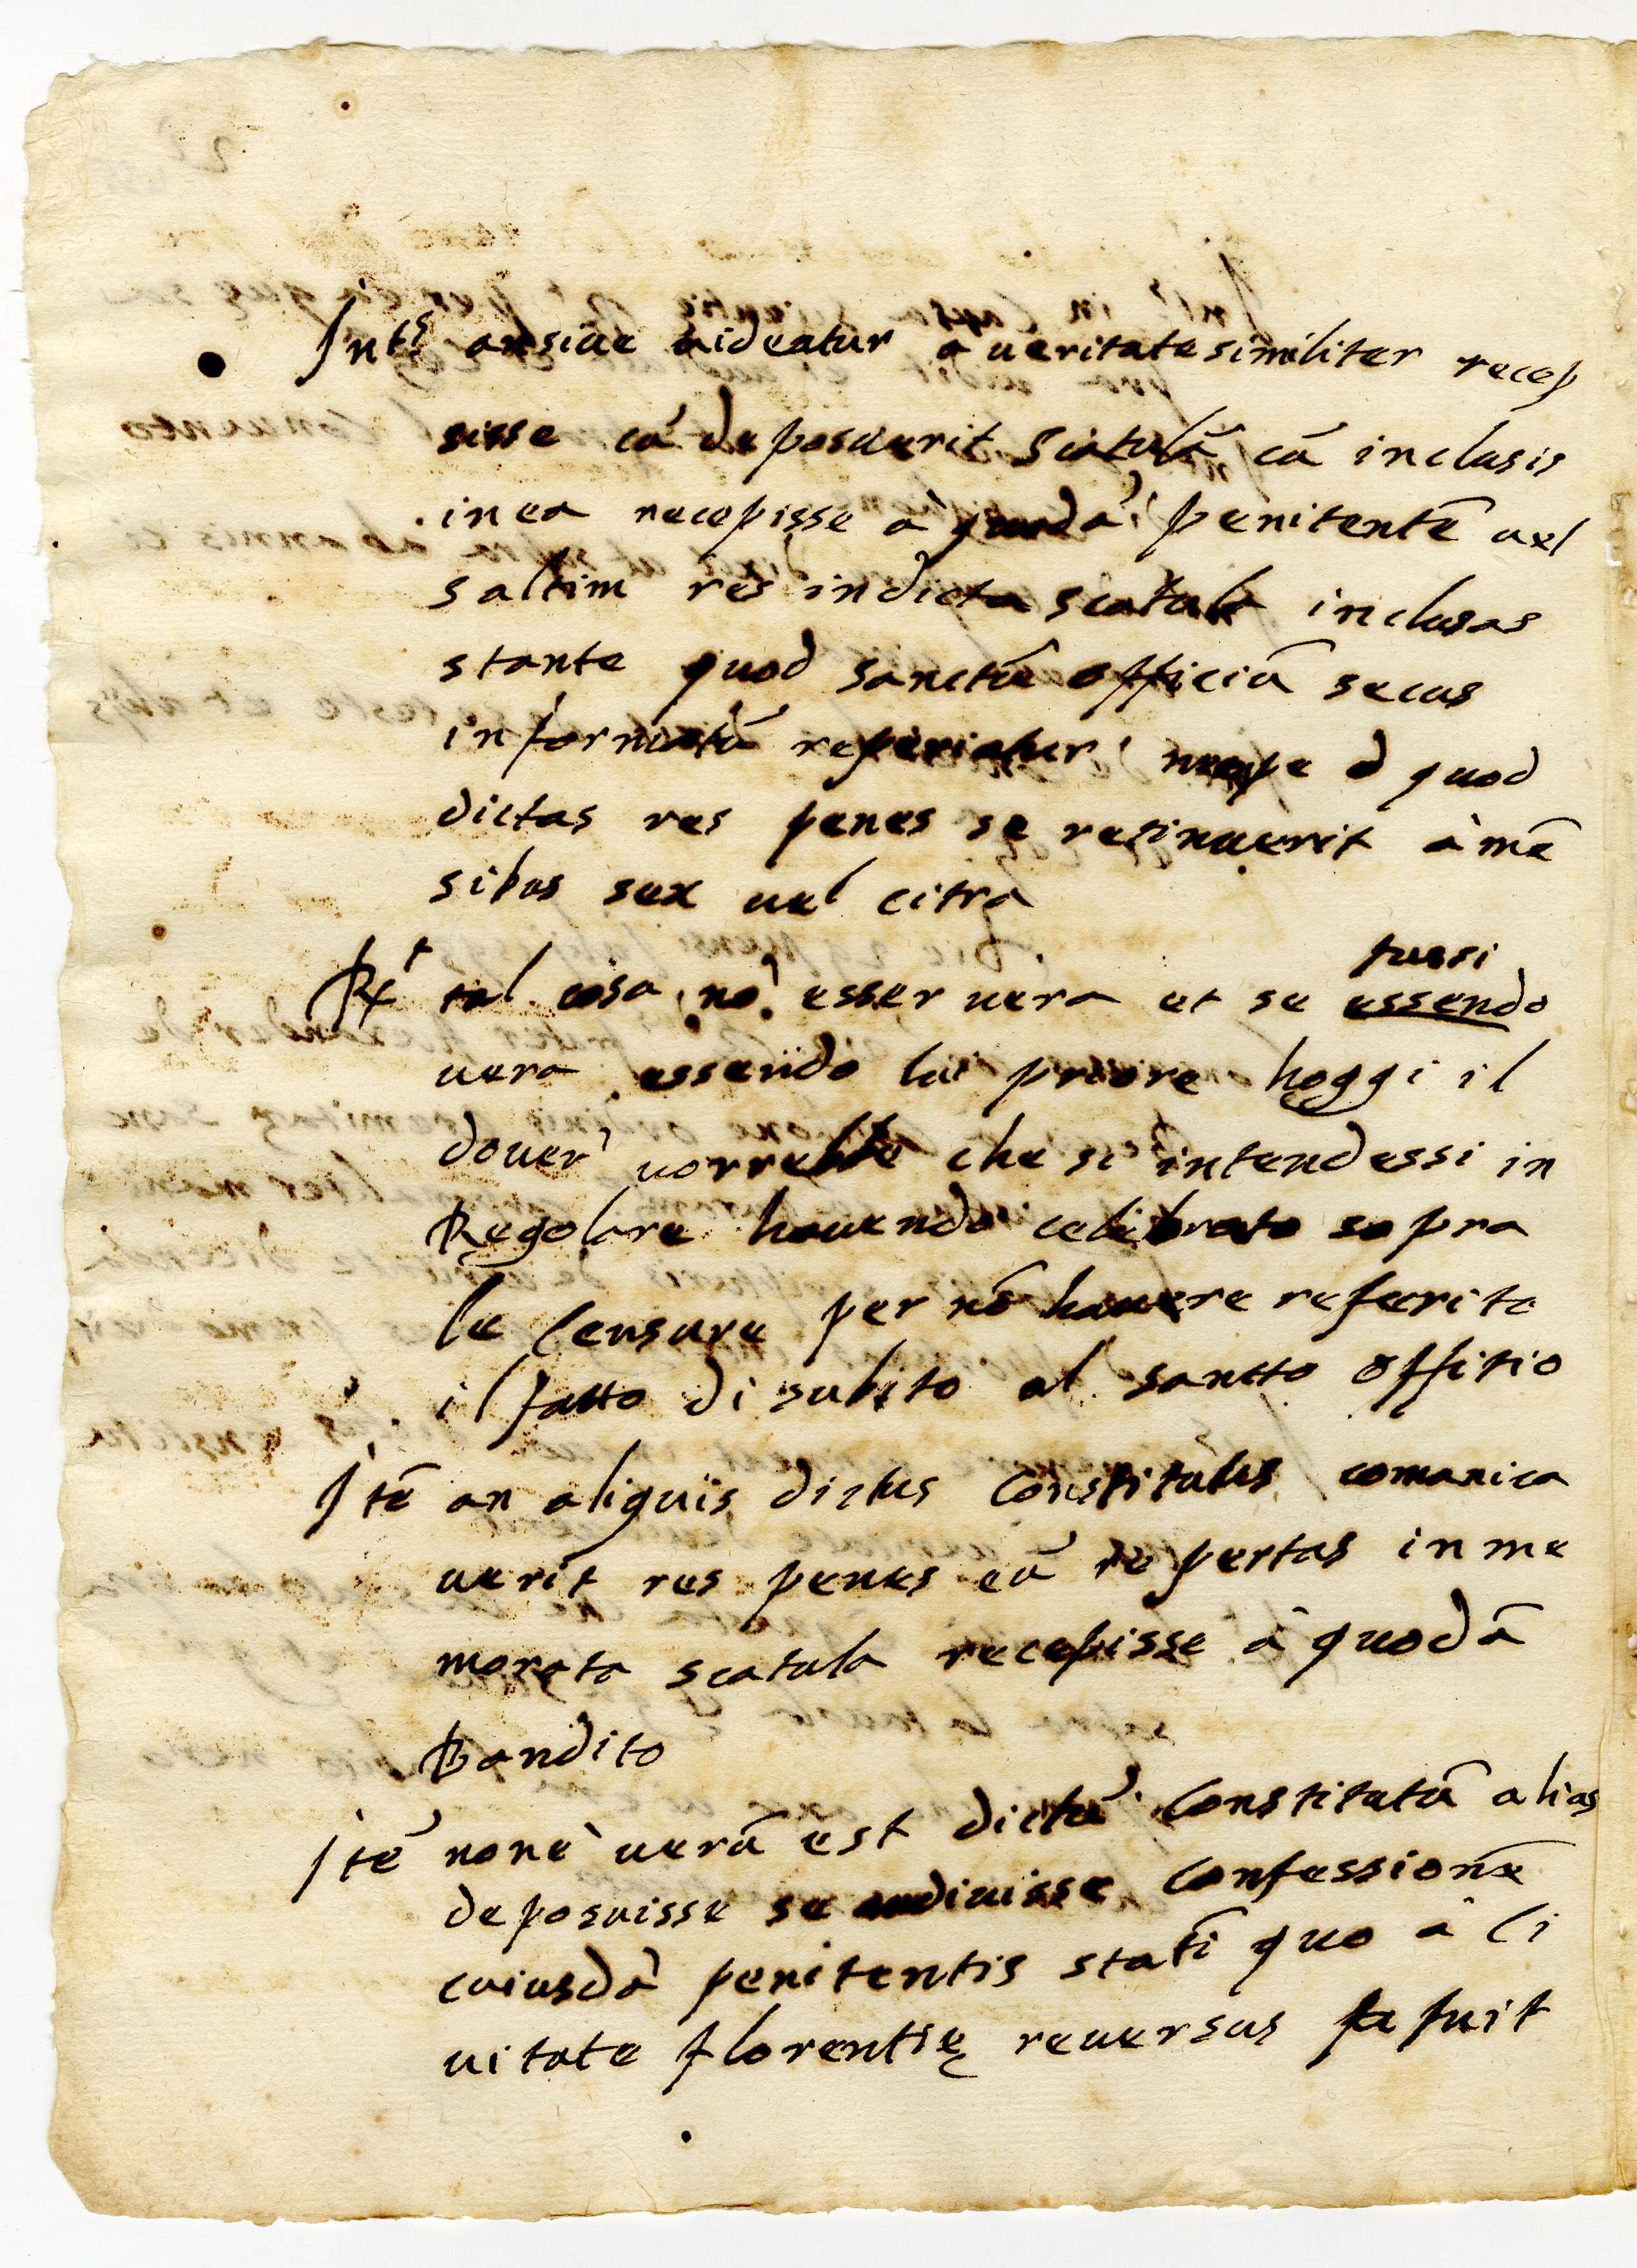 Int.s an sicue uideatur a ueritate similiter recep
sisse cū deposuerit Scatulā cū inclusis
in ea recepisse à quodā penitentē uel
saltim res in dicta scatula inclusas
stante quod sanctū officiū secus
informatū reperiatur nempe quod
dictas res penes se retinuerit à mē
sibus sex uel citra
R.t tal cosa nō esser uera et se essendo
fussi
uera essendo lui priore hoggi il
douer uorrebbe che si intendessi in
Regolare hauendo celebrato sopra
le Censure per nō hauere referito
il fatto di subito al santto offitio
Itē an aliquis dictus Constitutus comunica
uerit res penes eū repertas in me
morata scatula recepisse à quodā
Bandito
Itē nonè uerū est dictū Constitutū alias
deposuisse se audiuisse Confessionē
cuiusdā penitentis statī quo à Ci
uitate florentię reuersus fuit